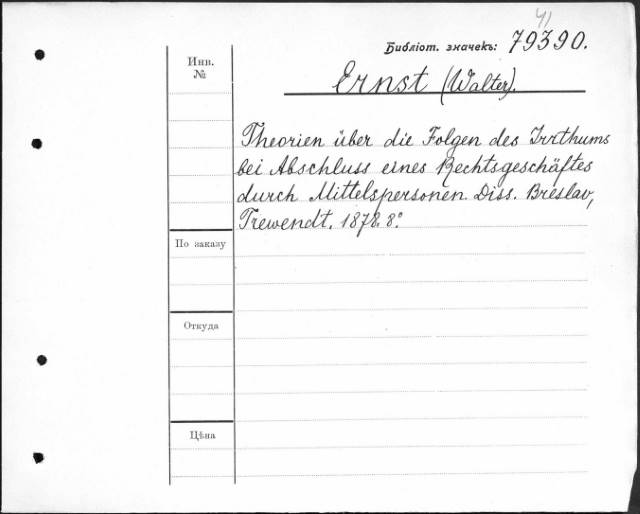 41
Библіот. значекъ: 79390.
Инв.
№
Ernst (Walter).
Theorien über die Folgen des Irrthums
bei Abschluss eines Rechtsgeschäftes
durch Mittelspersonen. Diss. Breslav,
Trewendt. 1878. 8°.
По заказу
Откуда
Цѣна